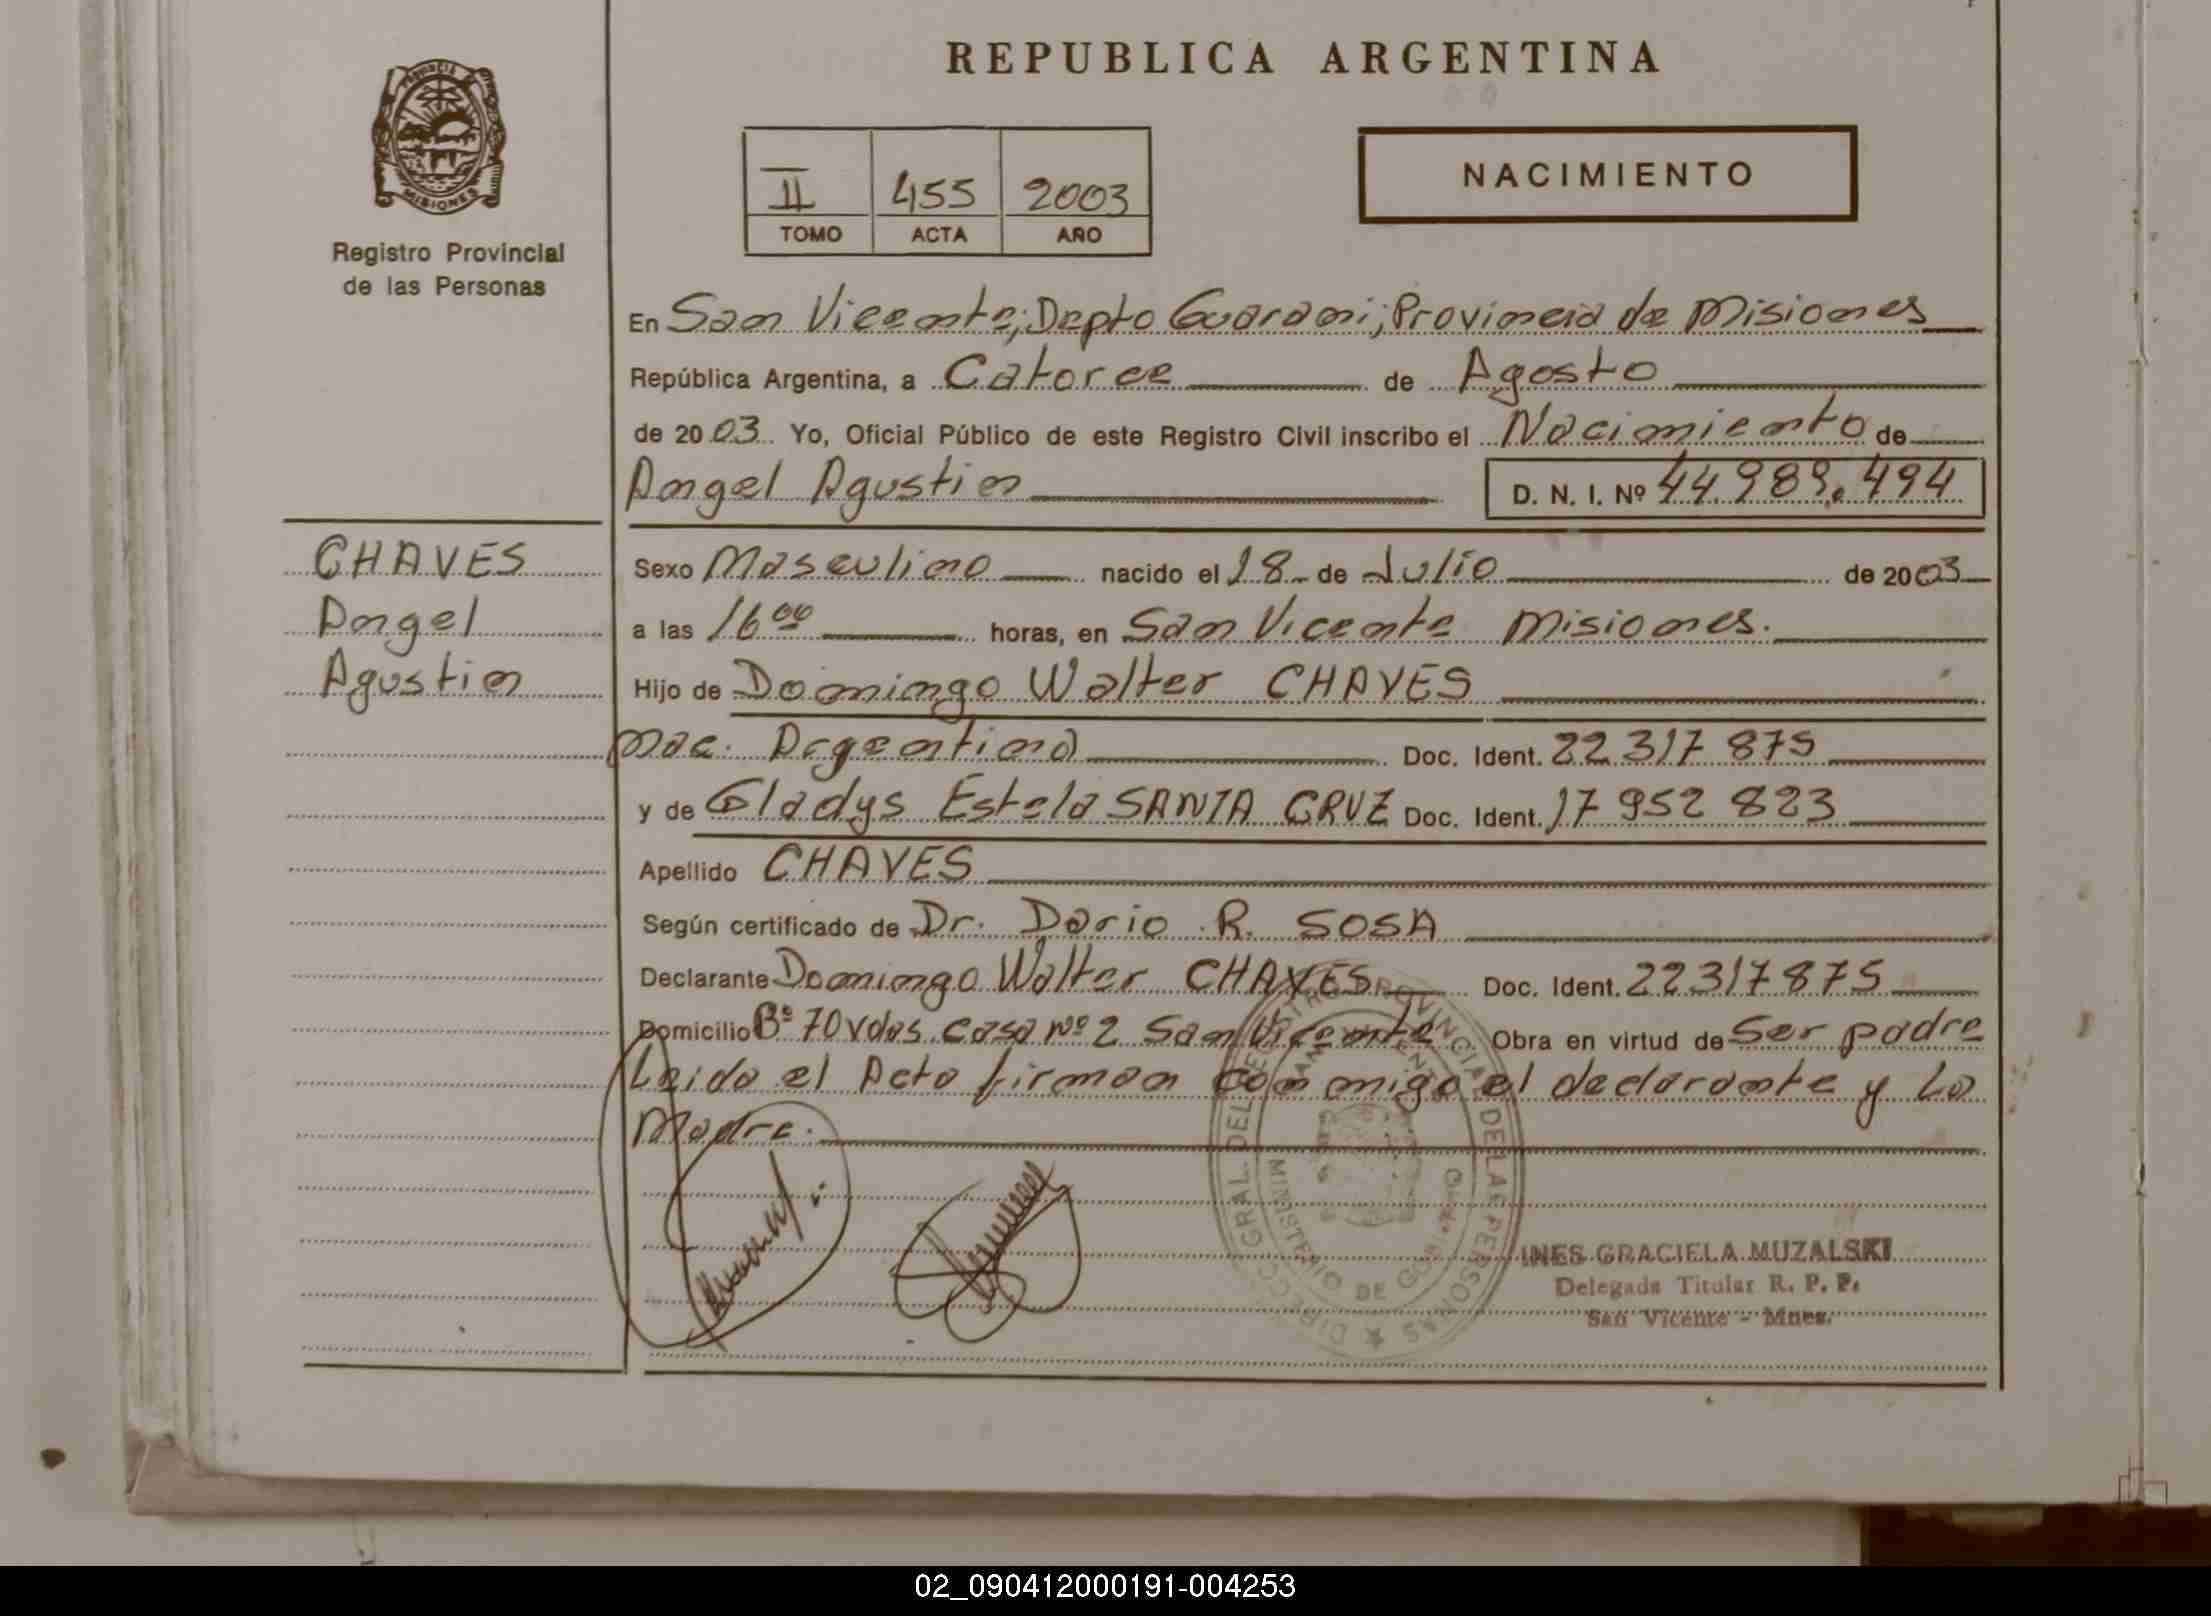 REPUBLICA ARGENTINA
PROVINCIA
MISIONES
Registro Provincial
de las Personas
II 455 2003
TOMO ACTA AÑO
NACIMIENTO
En San Vicente, Depto Guarani, Provincia de Misiones
República Argentina, a Catorce de Agosto
de 2003 Yo, Oficial Público de este Registro Civil inscribo el Nacimiento de
Angel Agustin D. N. I. Nº 44.989.494
CHAVES
Angel
Agustin
Sexo Masculino nacido el 18 de Julio de 2003
a las 16 00 horas, en San Vicente Misiones.
Hijo de Domingo Walter CHAVES
nac. Argentina Doc. Ident. 22 317 875
y de Gladys Estela SANTA CRUZ Doc. Ident. 17 952 823
Apellido CHAVES
Según certificado de Dr. Dario R. SOSA
Declarante Domingo Walter CHAVES Doc. Ident. 22317875
Domicilio Bº 70 vdas. casa Nº 2 San Vicente Obra en virtud de Ser padre
Leida el Acta firman conmigo el declarante y La
Madre.
DIRECC. GRAL. DEL REGISTRO PROVINCIAL DE LAS PERSONAS
SAN VICENTE
MINISTERIO DE GOBIERNO
INES GRACIELA MUZALSKI
Delegada Titular R. P. P.
San Vicente - Mnes.
02_090412000191-004253